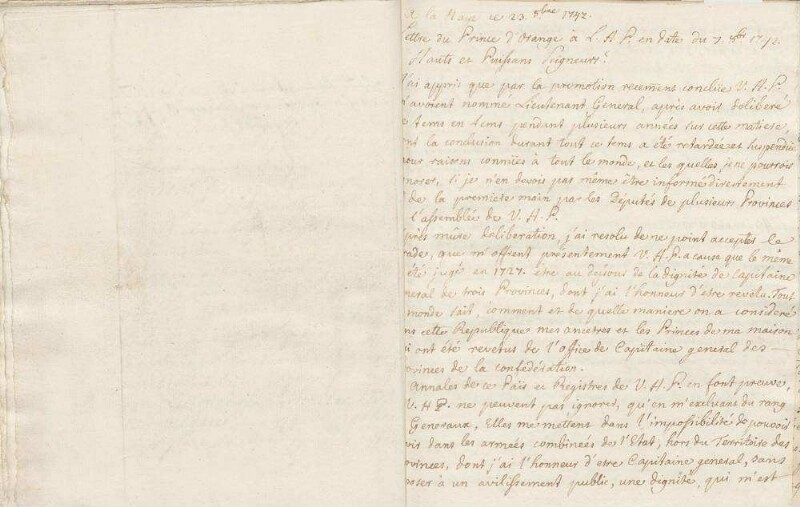 a la Haye ce 23. 8bre 1742.
Lettre du Prince d'Orange à L. H. P. en date du 7. 1742
Hauts et Puissans Seigneurs.
J'ai appris que par la promotion recement conclue V. H. P.
m'avoient nommé Lieutenant General, après avoir deliberé
de tems en tems pendant plusieurs années sur cette matiere,
dont la conclusion durant tout ce tems a été retardée et suspendue
pour raisons connües à tout le monde, et les quelles, je ne pourrois
ignorer, si je n'en devois pas même être informé directement
de la premiere main par les Députés de plusieurs Provinces
l'assemblée de V. H. P.
Après mûre deliberation, j'ai resolu de ne point accepter le
grade, que m'offrent présentement V. H. P. a cause que le même
été jugé en 1727. être au dessous de la dignité de Capitaine
general de trois Provinces, dont j'ai l'honneur d'etre revêtu. Tout
monde sait, comment et de quelle maniere on a consideré
dans cette Republique mes ancêtres et les Princes de ma maison
qui ont été revetus de l'office de Capitaine general des
Provinces de la confédération.
Annales de ce Païs et Registres de V. H. P. en font preuve,
V. H. P. ne peuvent pas ignorer, qu'en m'excluant du rang
Generaux, Elles me mettent dans l'impossibilité de pouvoir
servir dans les armées combinées de l'Etat, hors du Territoire des
Provinces, dont j'ai l'honneur d'etre Capitaine general, sans
exposer à un avilissement public, une dignité, qui m'est